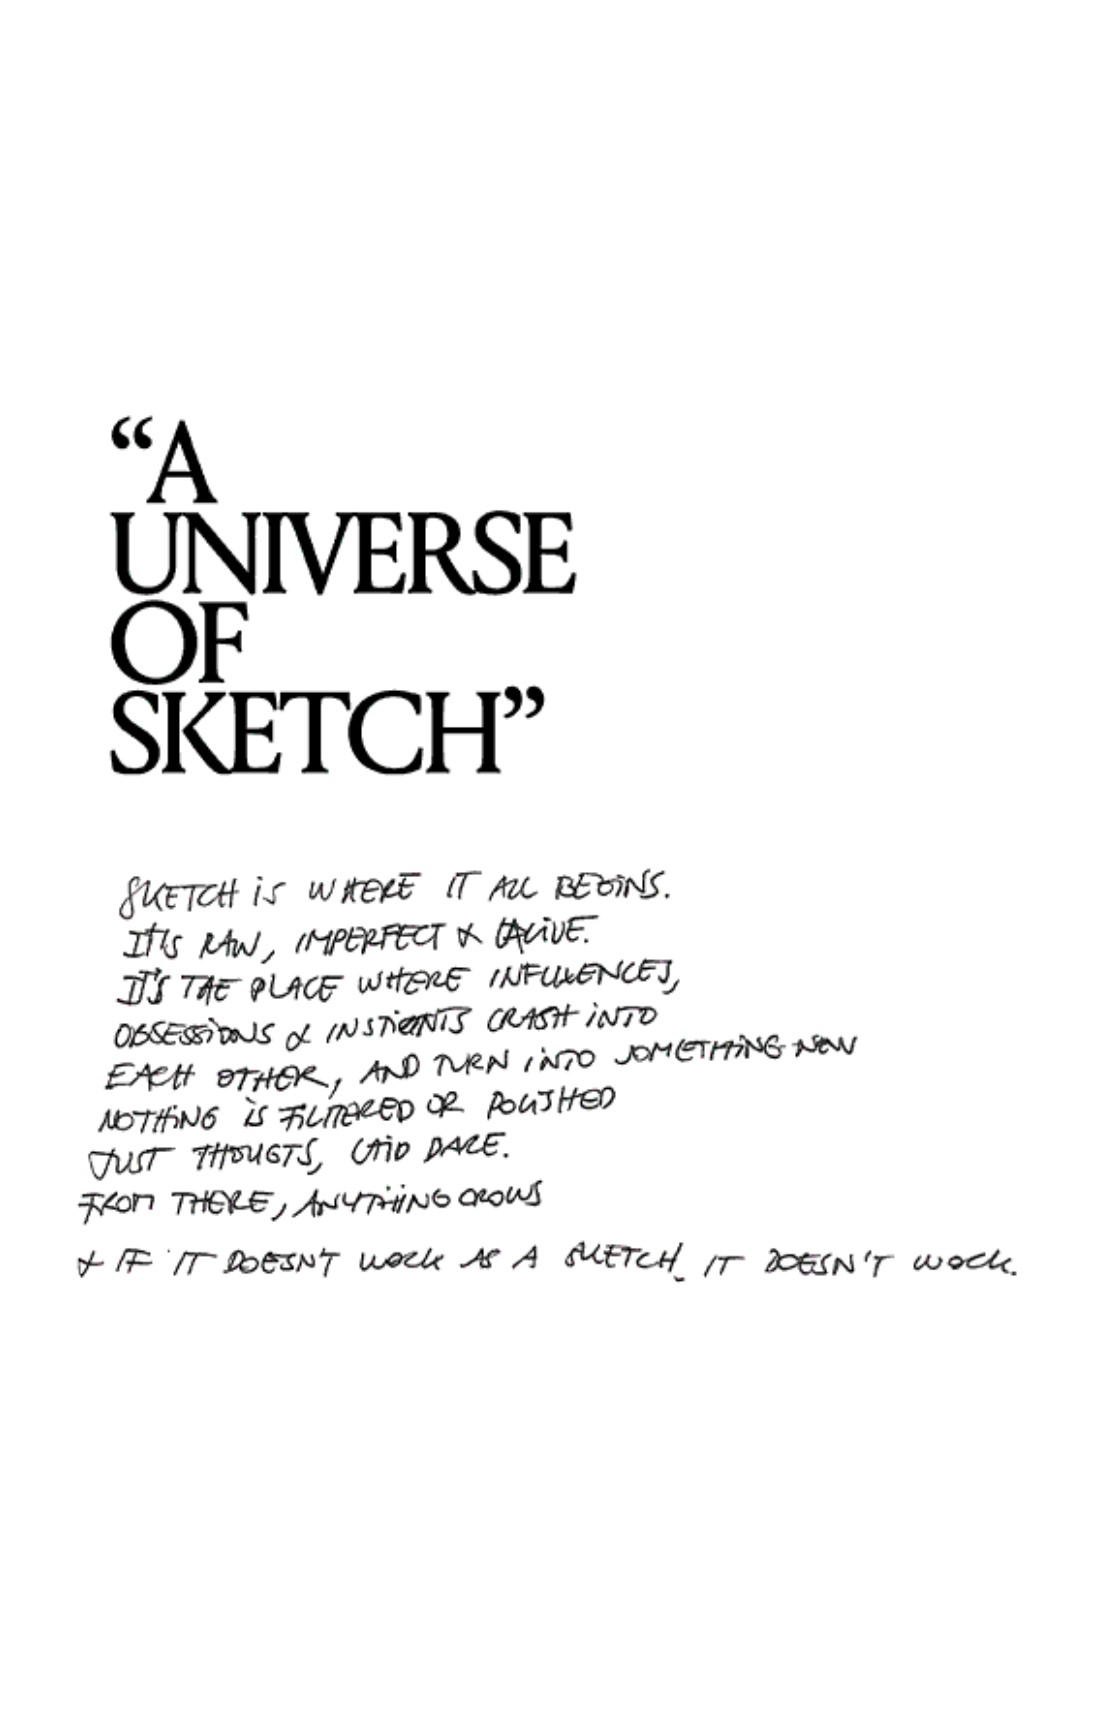 “A
UNIVERSE
OF
SKETCH”
SKETCH iS WHERE IT ALL BEGiNS.
IT'S RAW, IMPERFECT & ALiVE.
IT'S THE PLACE WHERE INFLUENCES,
OBSESSiONS & INSTiNTS CRASH iNTO
EACH OTHER, AND TURN iNTO SOMETHiNG NEW
NOTHiNG iS FiLTERED OR POLISHED
JUST THOUGTS, LAiD BARE.
FROM THERE, ANYTHiNG GROWS
& IF IT DOESN'T WORK AS A SKETCH, IT DOESN'T WORK.